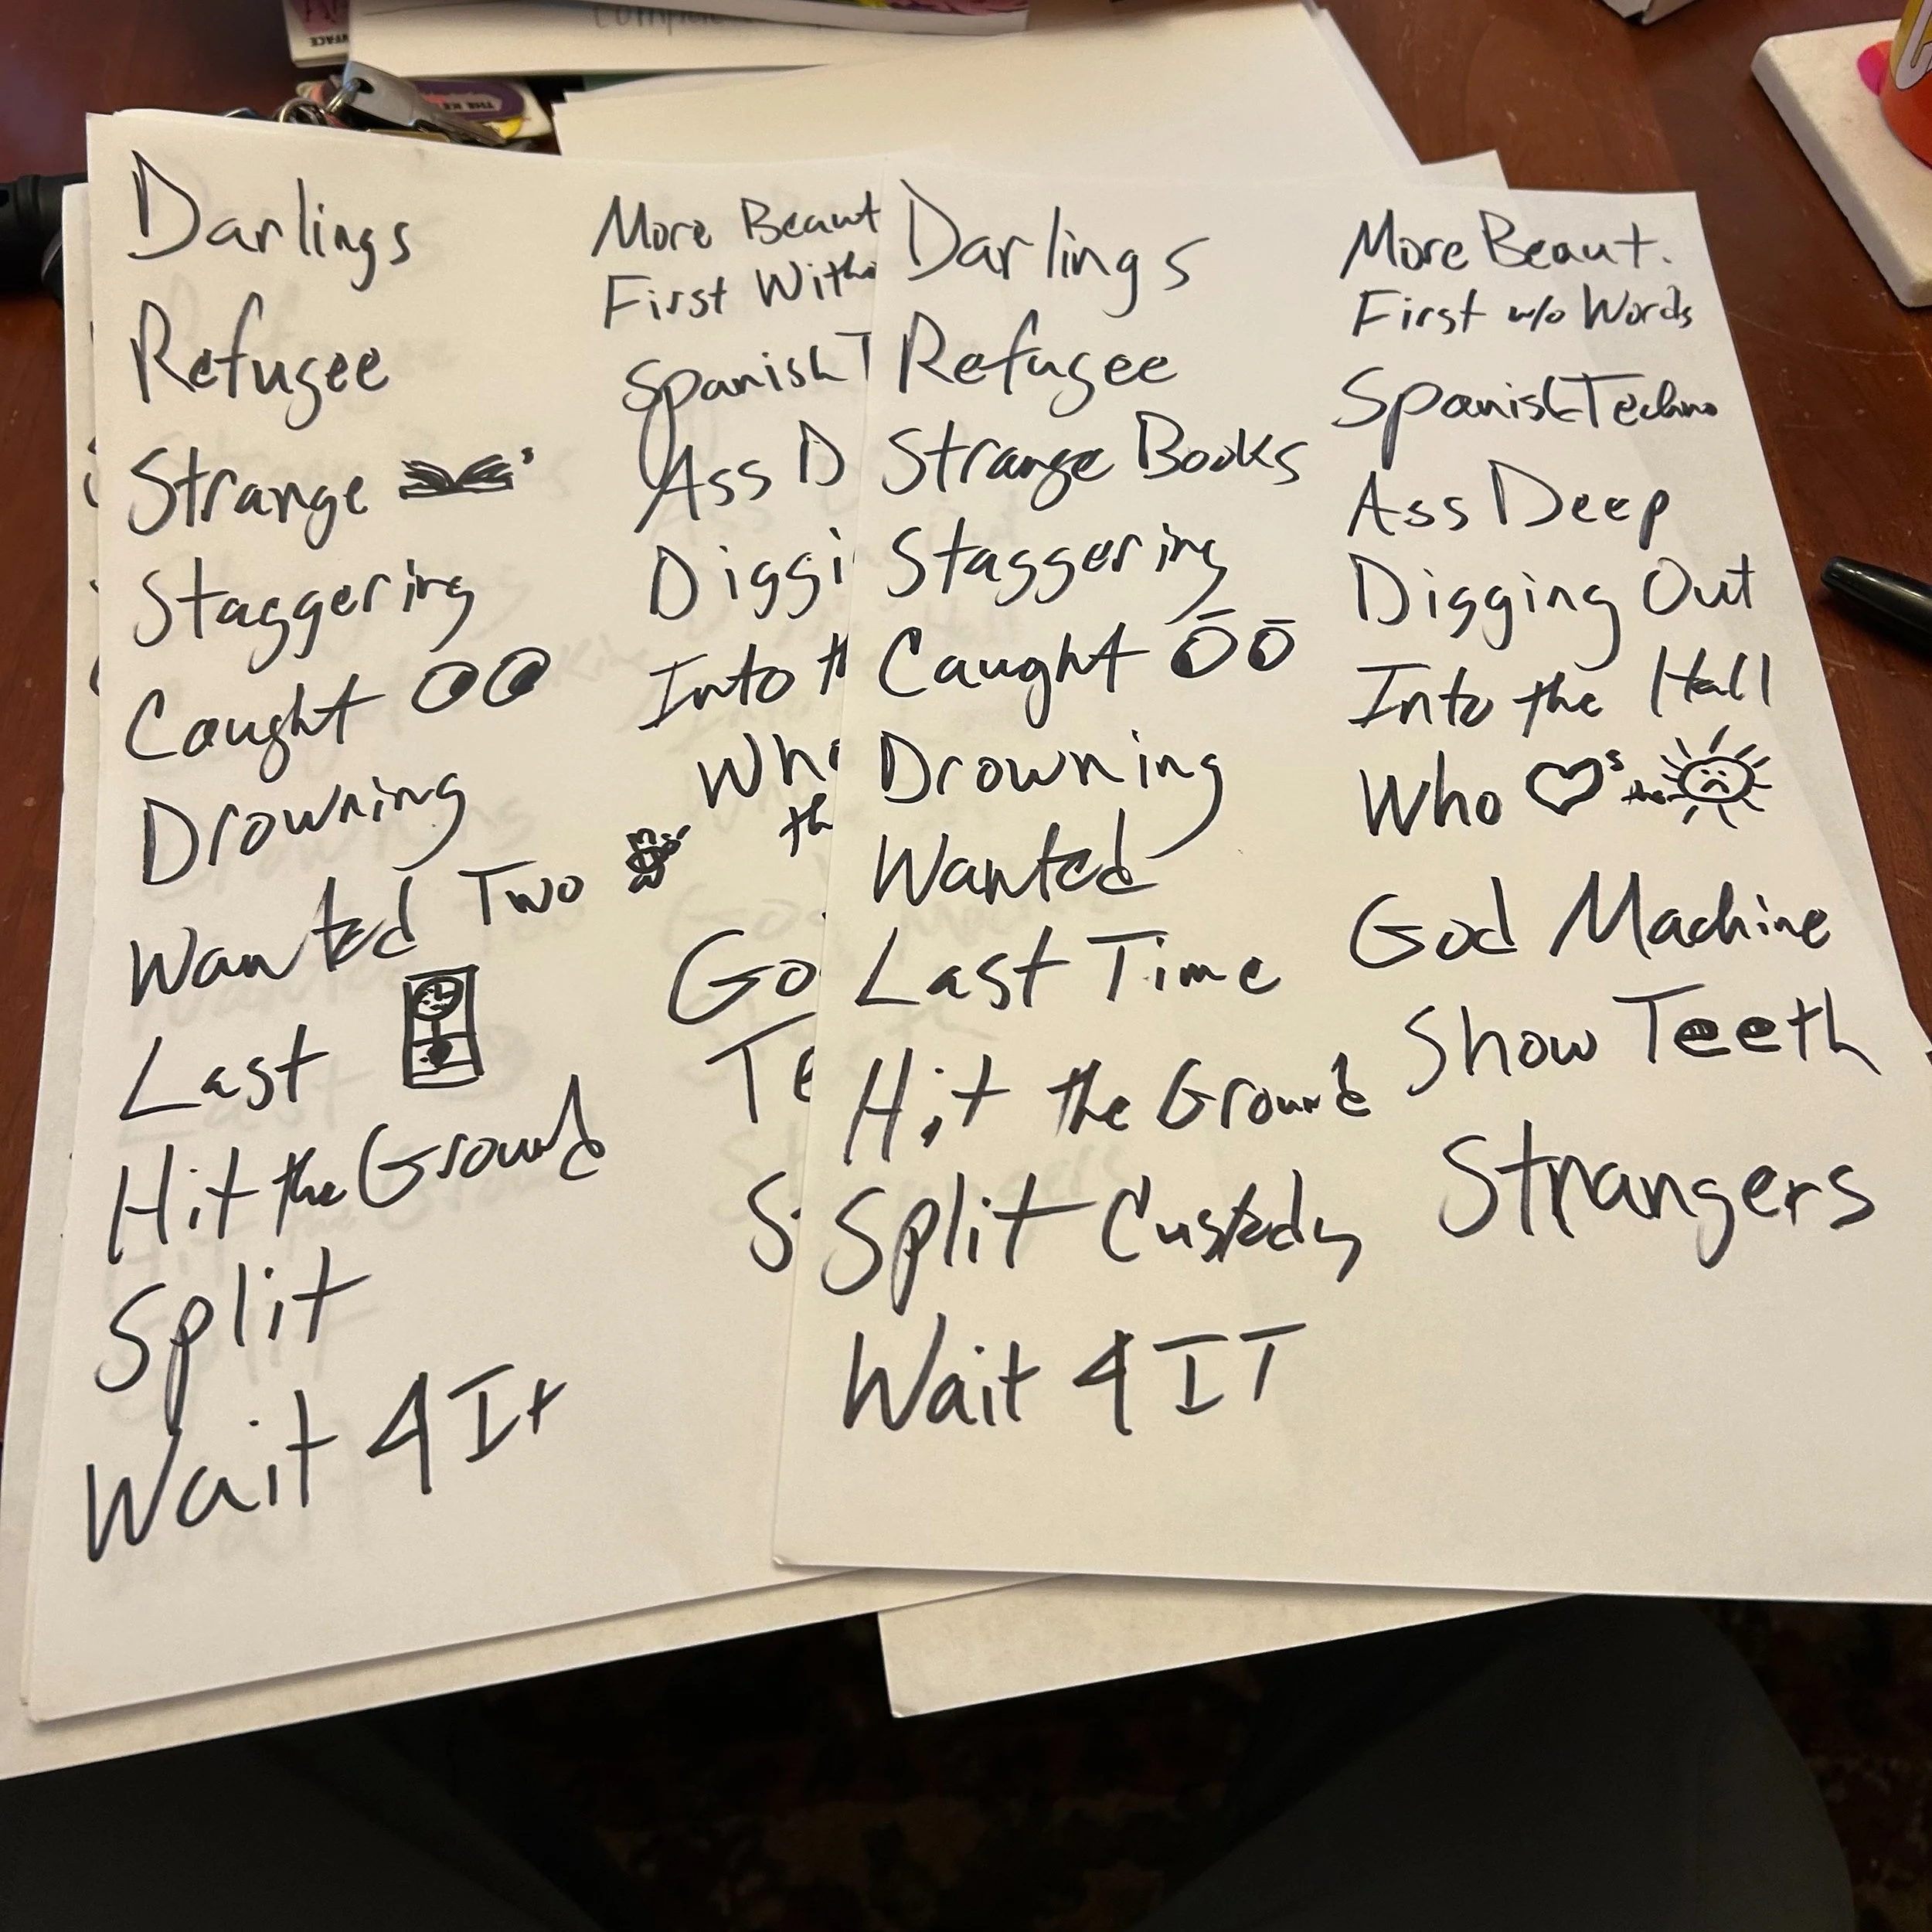 Darlings
Refugee
Strange
Staggering
Caught
Drowning
Wanted Two
Last
Hit the Ground
Split
Wait 4 It
More Beaut
First Witho
Spanish T
Ass D
Diggi
Into th
Who
th
Go
Te
S
Darlings
Refugee
Strange Books
Staggering
Caught
Drowning
Wanted
Last Time
Hit the Ground
Split Custody
Wait 4 IT
More Beaut.
First w/o Words
Spanish Techno
Ass Deep
Digging Out
Into the Hall
Who ♡s the
God Machine
Show Teeth
Strangers